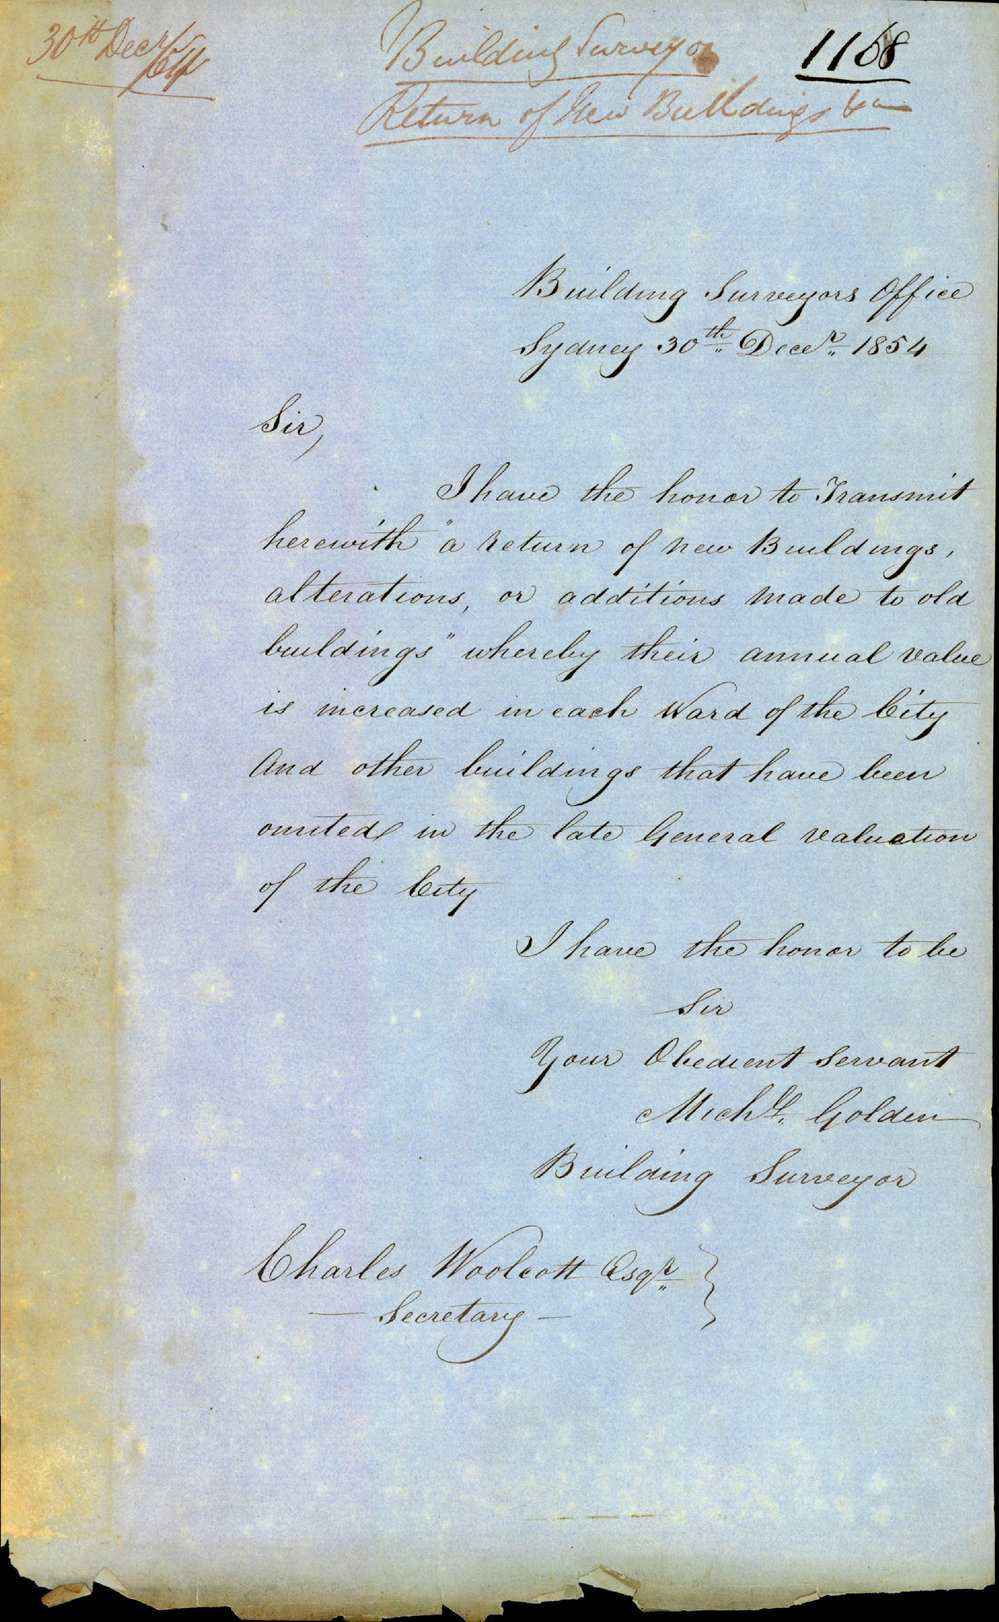 30th Decr/54
Building Surveyor
1168
Return of New Buildings &c
Building Surveyors Office
Sydney 30th Decer 1854
Sir,
I have the honor to Transmit
herewith "a return of new Buildings,
alterations, or additions made to old
buildings" whereby their annual value
is increased in each Ward of the City
And other buildings that have been
omited in the late General valuation
of the City
I have the honor to be
Sir
Your Obedient Servant
Michl. Golden
Building Surveyor
Charles Woolcott Esqr
— Secretary —